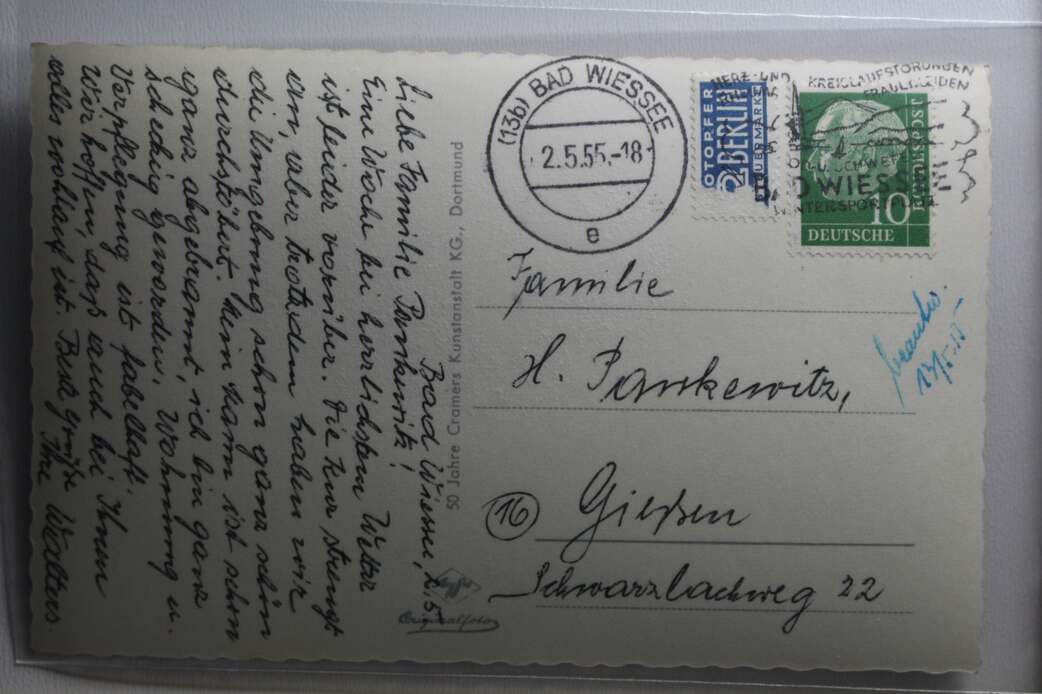 Bad Wiessee, 2.5.
Liebe Familie Pankewitz!
Eine Woche bei herrlichstem Wetter
ist leider vorüber. Die Kur strengt
an, aber trotzdem haben wir
die Umgebung schon ganz schön
durchstöbert. Mein Mann ist schon
ganz abgebrannt, ich bin ganz
scheckig geworden. Wohnung u.
Verpflegung ist fabelhaft.
Wir hoffen, daß auch bei Ihnen
alles wohlauf ist. Beste Grüße
Ihre Walters.
50 Jahre Cramers Kunstanstalt KG., Dortmund
Originalfoto
(13b) BAD WIESSEE
2.5.55.-18
e
NOTOPFER
2 BERLIN
STEUERMARKE
HERZ- UND KREISLAUFSTÖRUNGEN
FRAUENLEIDEN
BAD WIESSEE
WINTERSPORTPLATZ
DEUTSCHE
BUNDESPOST
10
Familie
H. Pankewitz,
(16) Gießen
Schwarzlachweg 22